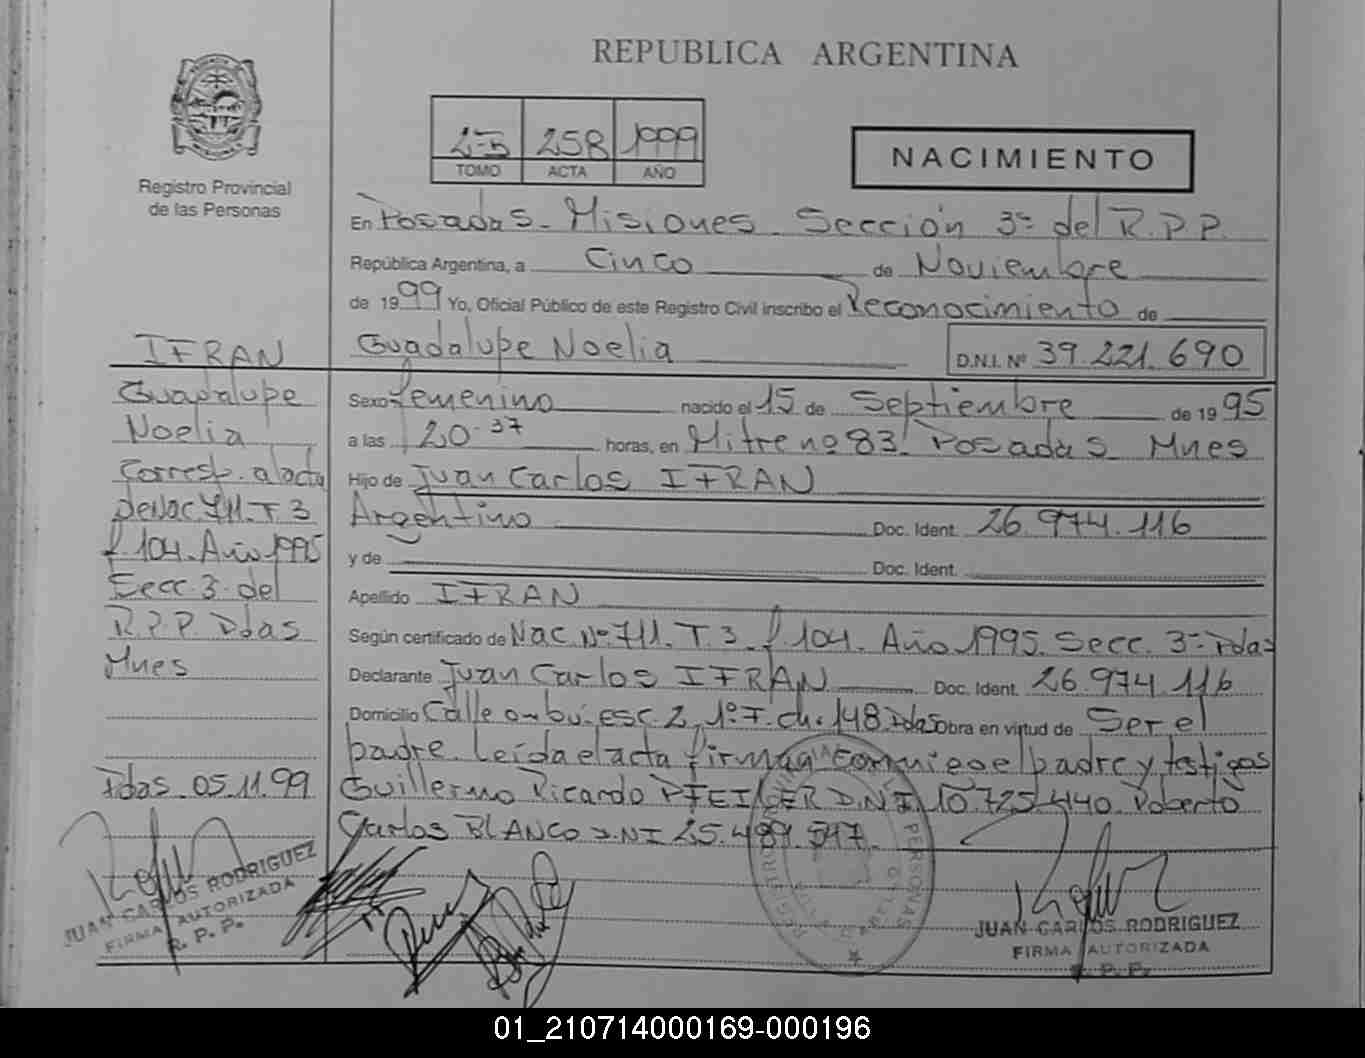 REPUBLICA ARGENTINA
258 1999
TOMO ACTA AÑO
NACIMIENTO
Registro Provincial
de las Personas
En Posadas - Misiones - Sección 3ª del R.P.P.
República Argentina, a Cinco de Noviembre
de 1999 Yo, Oficial Público de este Registro Civil inscribo el Reconocimiento de
Guadalupe Noelia D.N.I. Nº 39.221.690
Sexo femenino nacido el 15 de Septiembre de 1995
a las 20-37 horas, en Mitre nº 83 Posadas Mnes
Hijo de Juan Carlos IFRAN
Argentino Doc. Ident. 26.974.116
y de Doc. Ident.
Apellido IFRAN
Según certificado de Nac. Nº 711. T. 3. f. 104. Año 1995. Secc. 3ª Pdas
Declarante Juan Carlos IFRAN Doc. Ident. 26.974.116
Domicilio Calle ombú esc. 2, 1º F. ch. 148 Pdas Obra en virtud de Ser el
padre. Leída el acta firman conmigo el padre y testigos
Guillermo Ricardo D.N.I. 10.725.440 Roberto
Carlos BLANCO D.N.I 25.489.547.
IFRAN
Guadalupe
Noelia
Corresp. al acta
de Nac 711. T. 3
f. 104. Año 1995
Secc. 3ª del
R.P.P. Pdas
Mnes
Pdas. 05.11.99
JUAN CARLOS RODRIGUEZ
FIRMA AUTORIZADA
R. P. P.
JUAN CARLOS RODRIGUEZ
FIRMA AUTORIZADA
R. P. P.
01_210714000169-000196